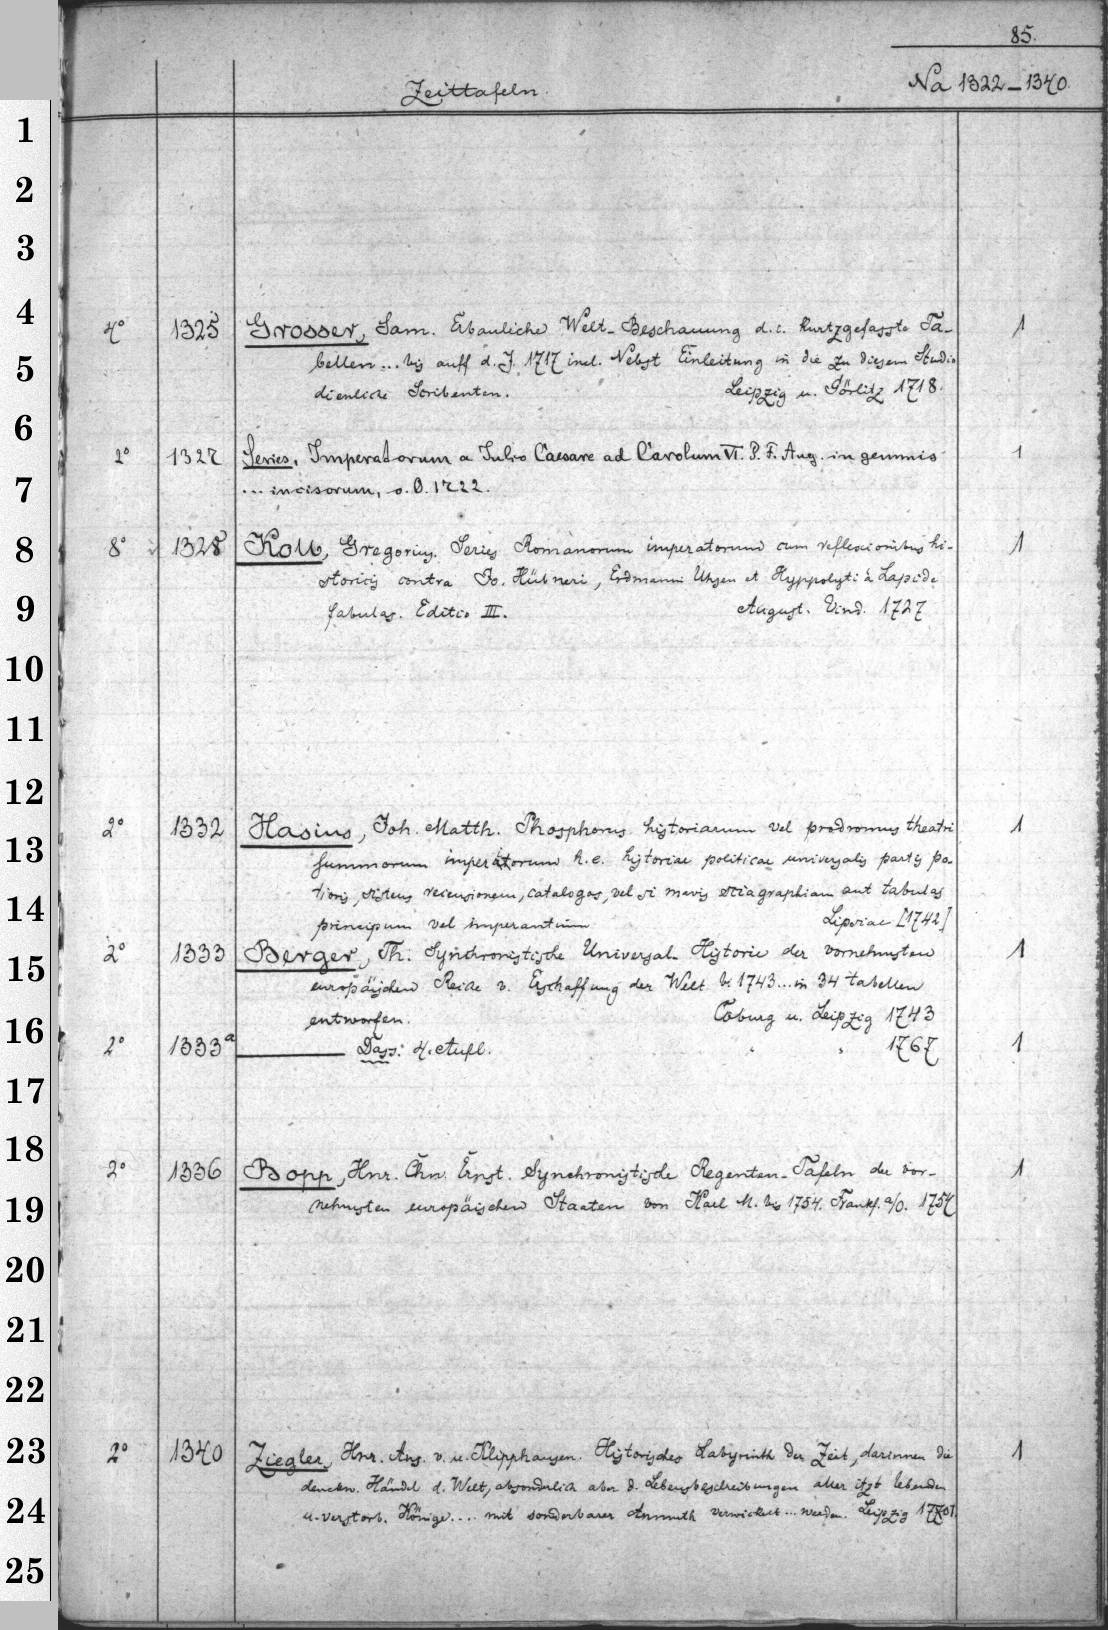 85.
Zeittafeln.
Na 1322–1340.
1
2
3
4
5
6
7
8
9
10
11
12
13
14
15
16
17
18
19
20
21
22
23
24
25
4° 1325 Grosser, Sam. Erbauliche Welt-Beschauung d. i. kurtzgefasste Ta- 1
bellen... bis auff d. J. 1717 incl. Nebst Einleitung in die zu diesem Studio
dienliche Scribenten. Leipzig u. Görlitz 1718.
2° 1327 Series, Imperatorum a Julio Caesare ad Carolum VI. P. F. Aug. in gemmis 1
... incisorum, o. O. 1722.
8° 1328 Kolb, Gregorius. Series Romanorum imperatorum cum reflexionibus hi- 1
storicis contra Jo. Hübneri, Erdmanni Uhsen et Hyppolyti à Lapide
fabulas. Editio III. August. Vind. 1727
2° 1332 Hasius, Joh. Matth. Phosphorus historiarum vel prodromus theatri 1
summorum imperatorum h. e. historiae politicae universalis partis po-
tioris, sistens recensionem, catalogos, vel si mavis sciagraphiam aut tabulas
principum vel imperantium Lipsiae [1742]
2° 1333 Berger, Th. Synchronistische Universal-Historie der vornehmsten 1
europäischen Reiche v. Erschaffung der Welt bis 1743... in 34 tabellen
entworfen. Coburg u. Leipzig 1743
2° 1333a ——— Dass: 4. Aufl. " " 1767 1
2° 1336 Bopp, Hnr. Chn. Ernst. Synchronistische Regenten-Tafeln der vor- 1
nehmsten europäischen Staaten von Karl M. bis 1754. Frankf. a/O. 1754
2° 1340 Ziegler, Hnr. Ans. v. u. Klipphausen. Historisches Labyrinth der Zeit, darinnen die 1
denckw. Händel d. Welt, absonderlich aber d. Lebensbeschreibungen aller itzt lebenden
u. verstorb. Könige.... mit sonderbarer Anmuth verwickelt... werden. Leipzig